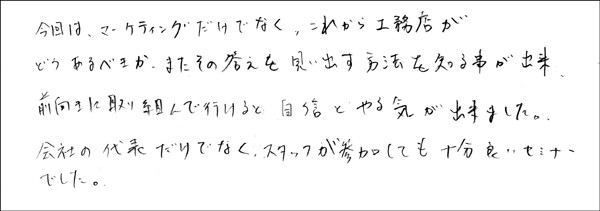 今回は、マーケティングだけでなく、これから工務店が
どうあるべきか、またその答えを見い出す方法を知る事が出来、
前向きに取り組んで行けると自信とやる気が出来ました。
会社の代表だけでなく、スタッフが参加しても十分良いセミナー
でした。